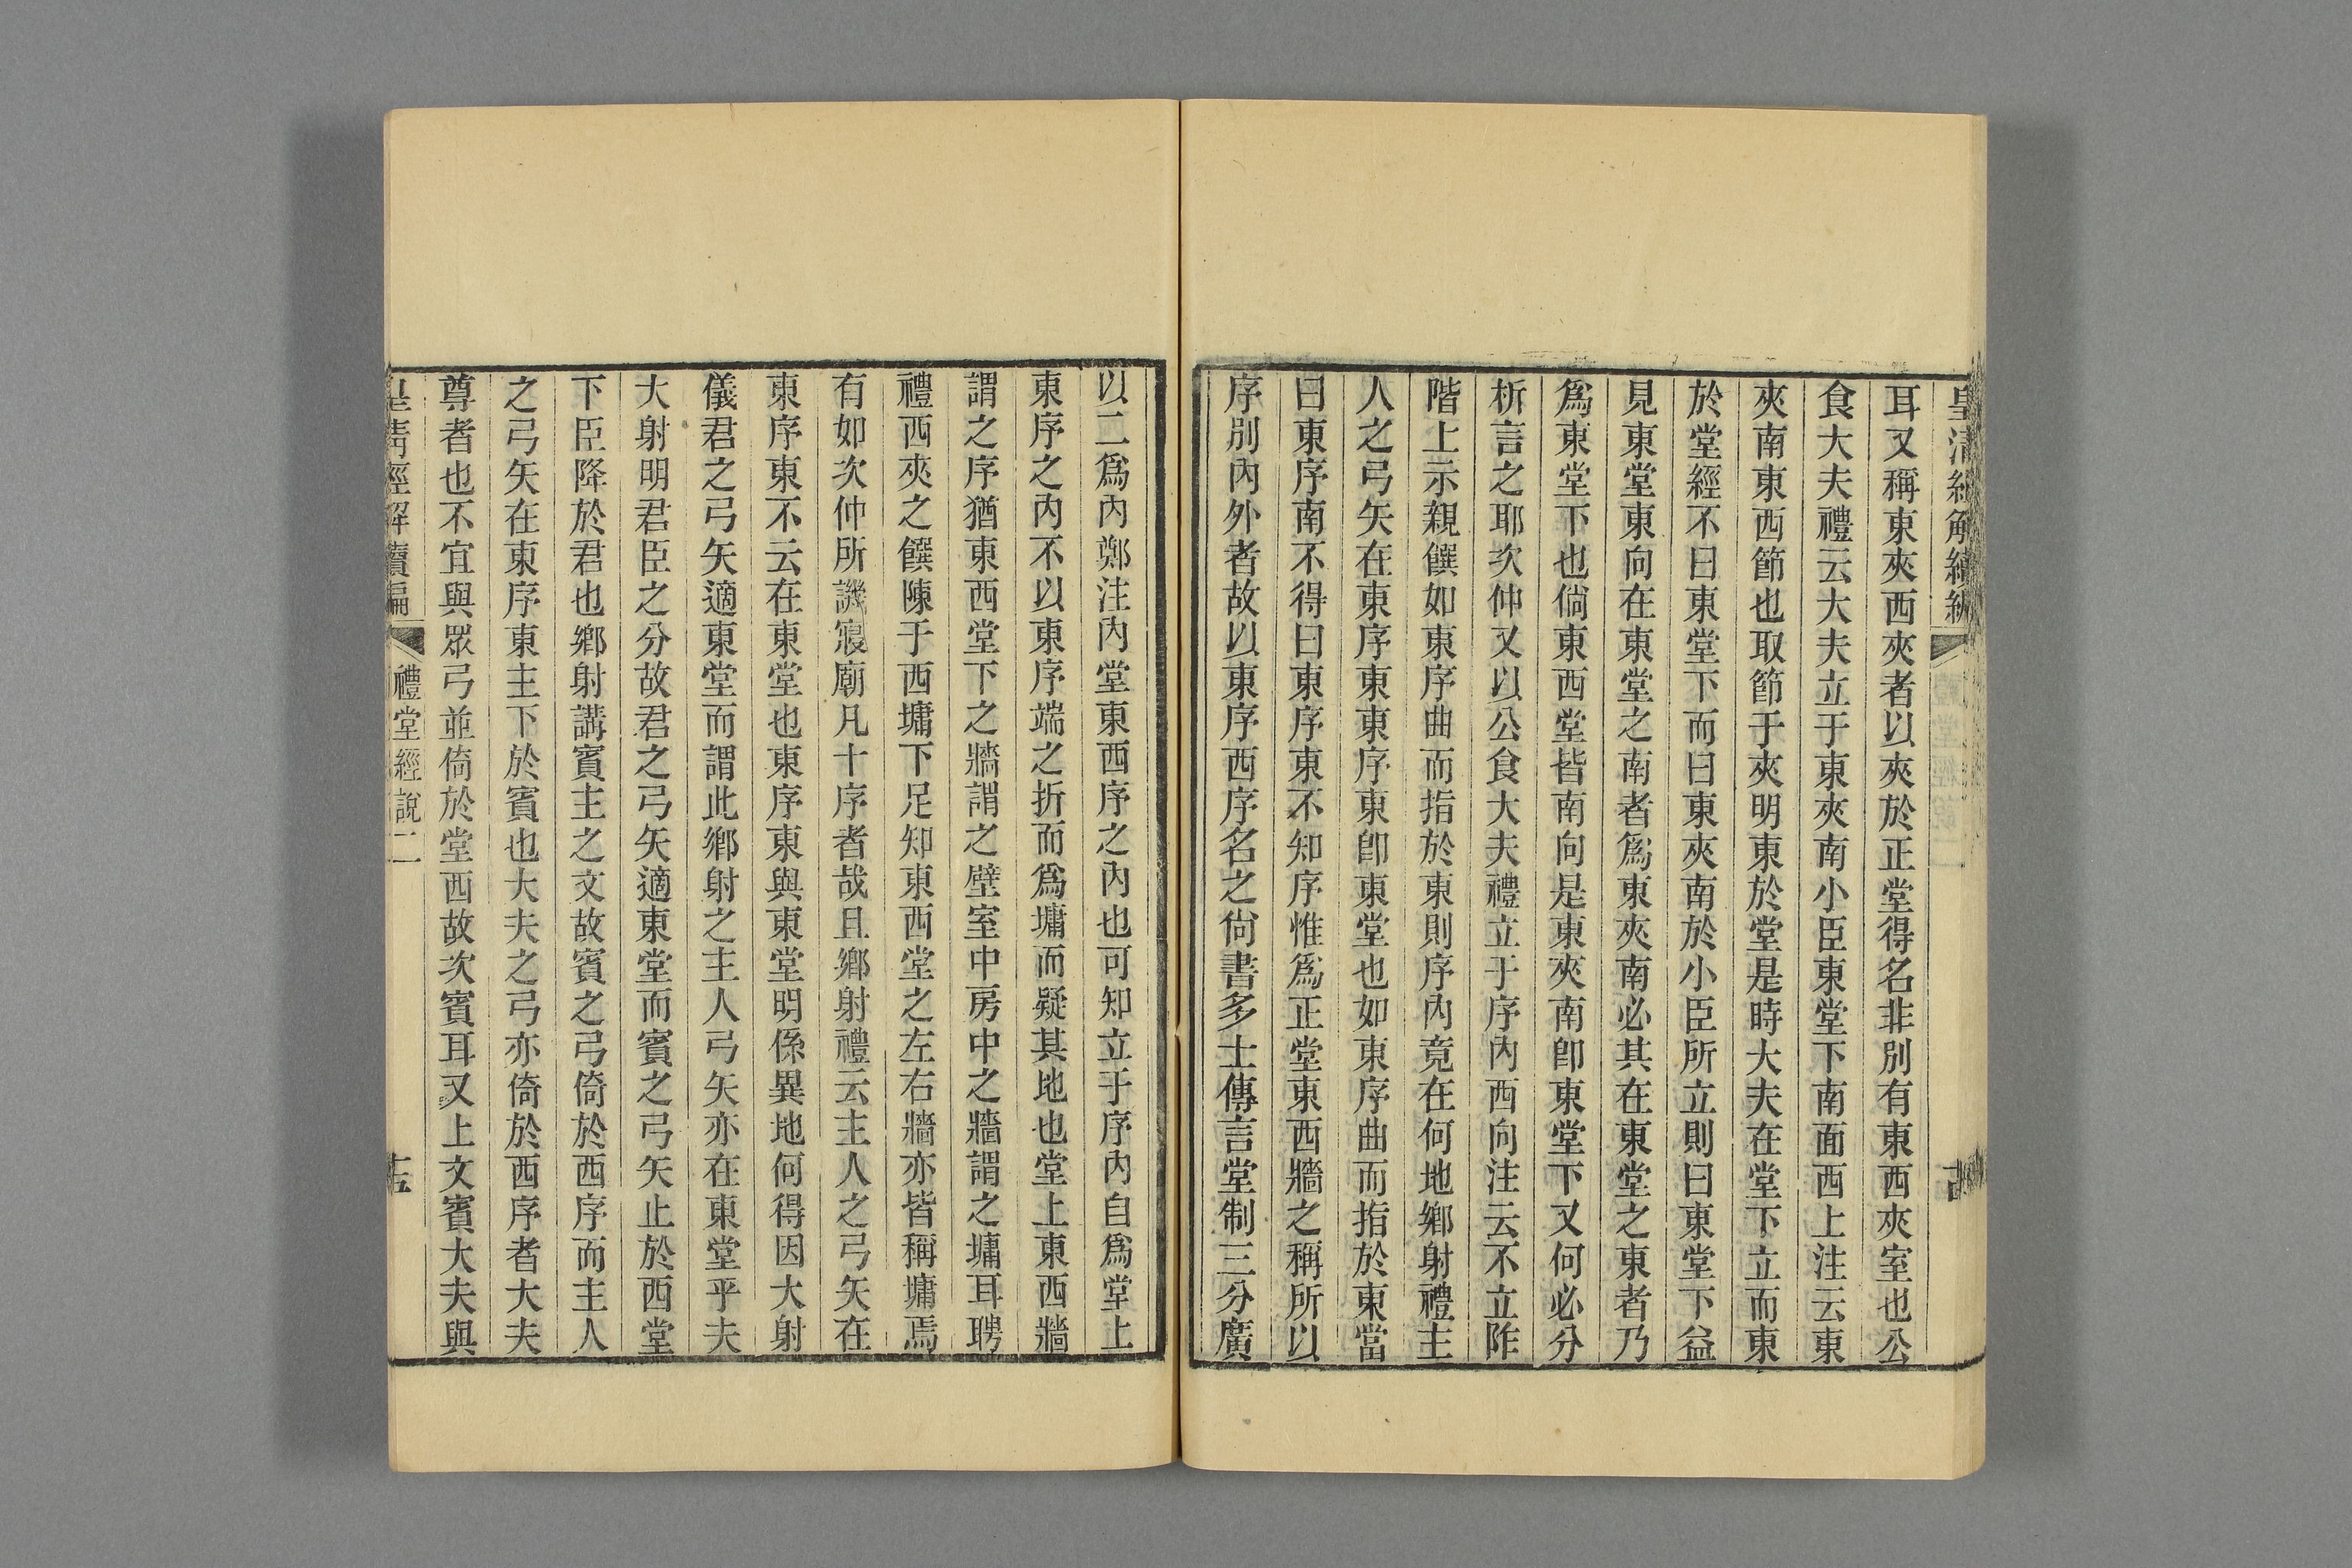 皇清經解續編
耳又稱東夾西夾者以夾於正堂得名非別有東西夾室也公
食大夫禮云大夫立于東夾南小臣東堂下南面西上注云東
夾南東西節也取節于夾明東於堂是時大夫在堂下立而東
於堂經不曰東堂下而曰東夾南於小臣所立則曰東堂下益
見東堂東向在東堂之南者爲東夾南必其在東堂之東者乃
爲東堂下也倘東西堂皆南向是東夾南卽東堂下又何必分
析言之耶次仲又以公食大夫禮立于序內西向注云不立阼
階上示親饌如東序曲而指於東則序內竟在何地鄉射禮主
人之弓矢在東序東東序東卽東堂也如東序曲而指於東當
曰東序南不得曰東序東不知序惟爲正堂東西牆之稱所以
序別內外者故以東序西序名之尙書多士傳言堂制三分廣
以二爲內鄭注內堂東西序之內也可知立于序內自爲堂上
東序之內不以東序端之折而爲墉而疑其地也堂上東西牆
謂之序猶東西堂下之牆謂之壁室中房中之牆謂之墉耳聘
禮西夾之饌陳于西墉下足知東西堂之左右牆亦皆稱墉焉
有如次仲所譏寢廟凡十序者哉且鄉射禮云主人之弓矢在
東序東不云在東堂也東序東與東堂明係異地何得因大射
儀君之弓矢適東堂而謂此鄉射之主人弓矢亦在東堂乎夫
大射明君臣之分故君之弓矢適東堂而賓之弓矢止於西堂
下臣降於君也鄉射講賓主之文故賓之弓倚於西序而主人
之弓矢在東序東主下於賓也大夫之弓亦倚於西序者大夫
尊者也不宜與眾弓並倚於堂西故次賓耳又上文賓大夫與
皇清經解續編
禮堂經說二